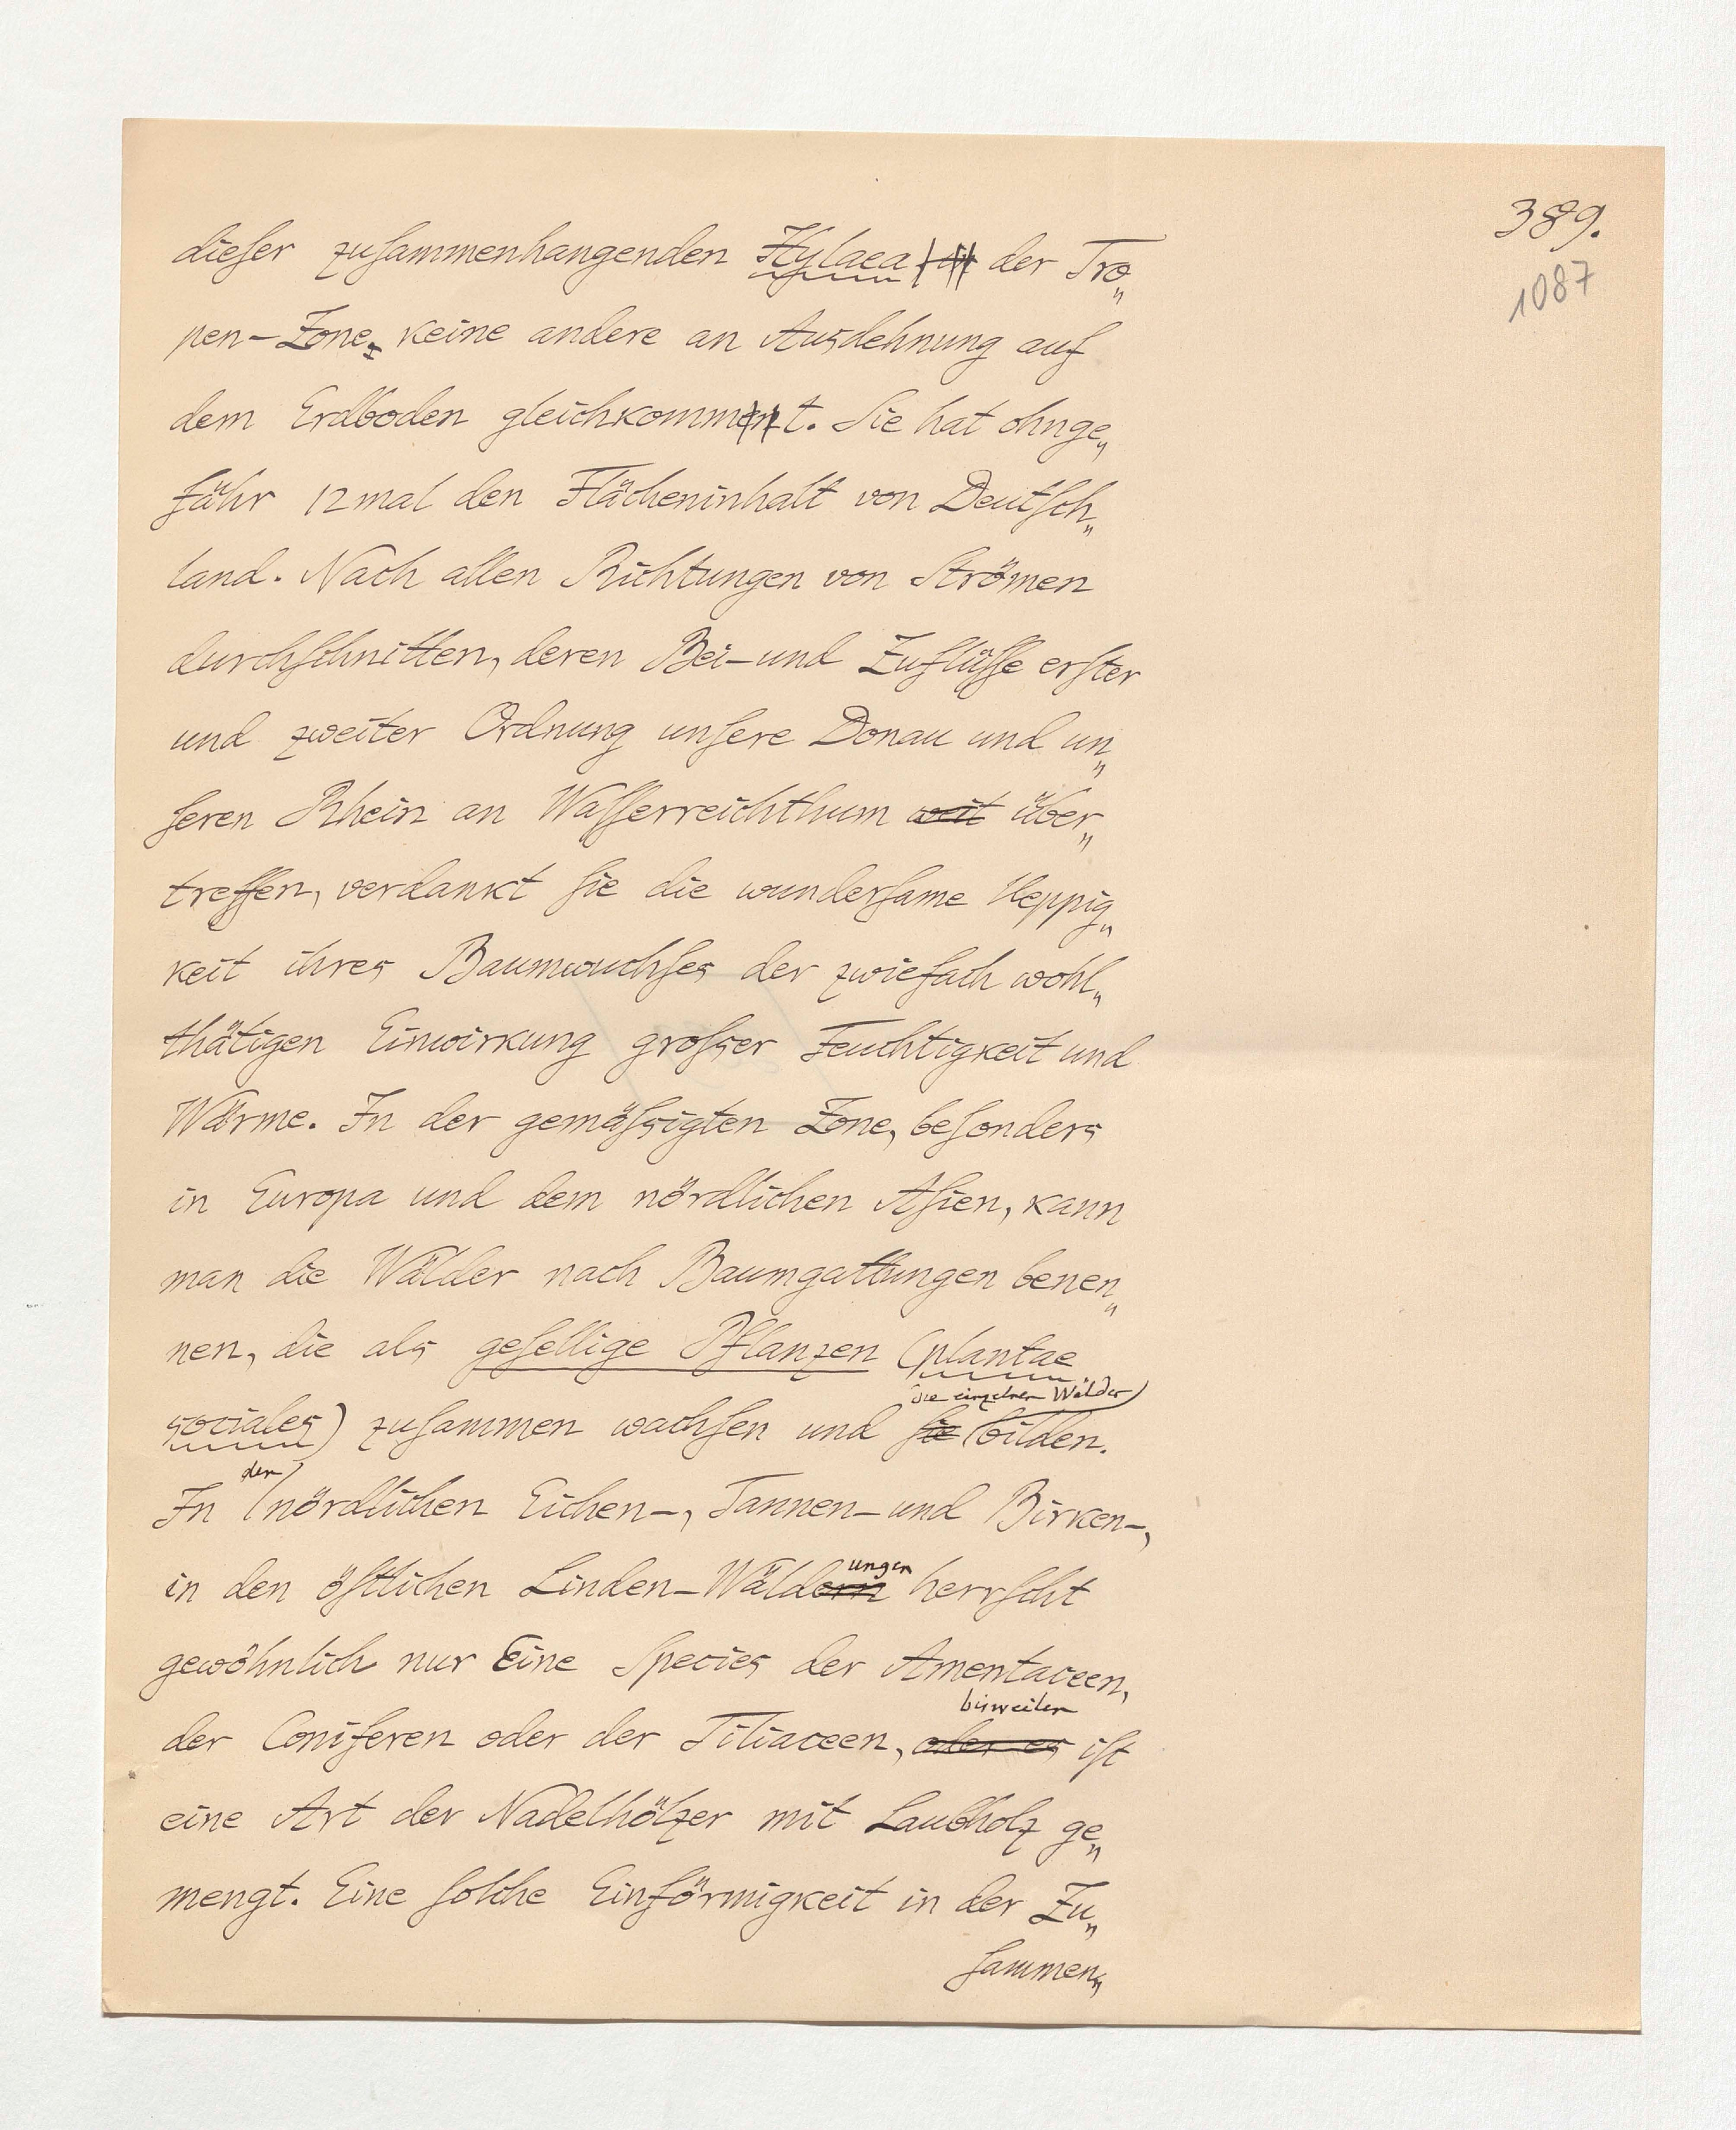 389.
1087
dieser zusammenhangenden Hylaea der Tro„
pen-Zone, keine andere an Ausdehnung auf
dem Erdboden gleichkommt. Sie hat ohnge„
fähr 12mal den Flächeninhalt von Deutsch„
land. Nach allen Richtungen von Strömen
durchschnitten, deren Bei- und Zuflüsse erster
und zweiter Ordnung unsere Donau und un„
seren Rhein an Wasserreichthum weit über„
treffen, verdankt sie die wundersame Ueppig„
keit ihres Baumwuchses der zwiefach wohl„
thätigen Einwirkung grosser Feuchtigkeit und
Wärme. In der gemässigten Zone, besonders
in Europa und dem nördlichen Asien, kann
man die Wälder nach Baumgattungen benen„
nen, die als gesellige Pflanzen (plantae
die einzelnen Wälder
sociales) zusammen wachsen und sie bilden.
den
In nördlichen Eichen-, Tannen- und Birken-,
ungen
in den östlichen Linden-Wäldern herrscht
gewöhnlich nur Eine Species der Amentaceen,
bisweilen
der Coniferen oder der Tiliaceen, oder es ist
eine Art der Nadelhölzer mit Laubholz ge„
mengt. Eine solche Einförmigkeit in der Zu„
sammen„